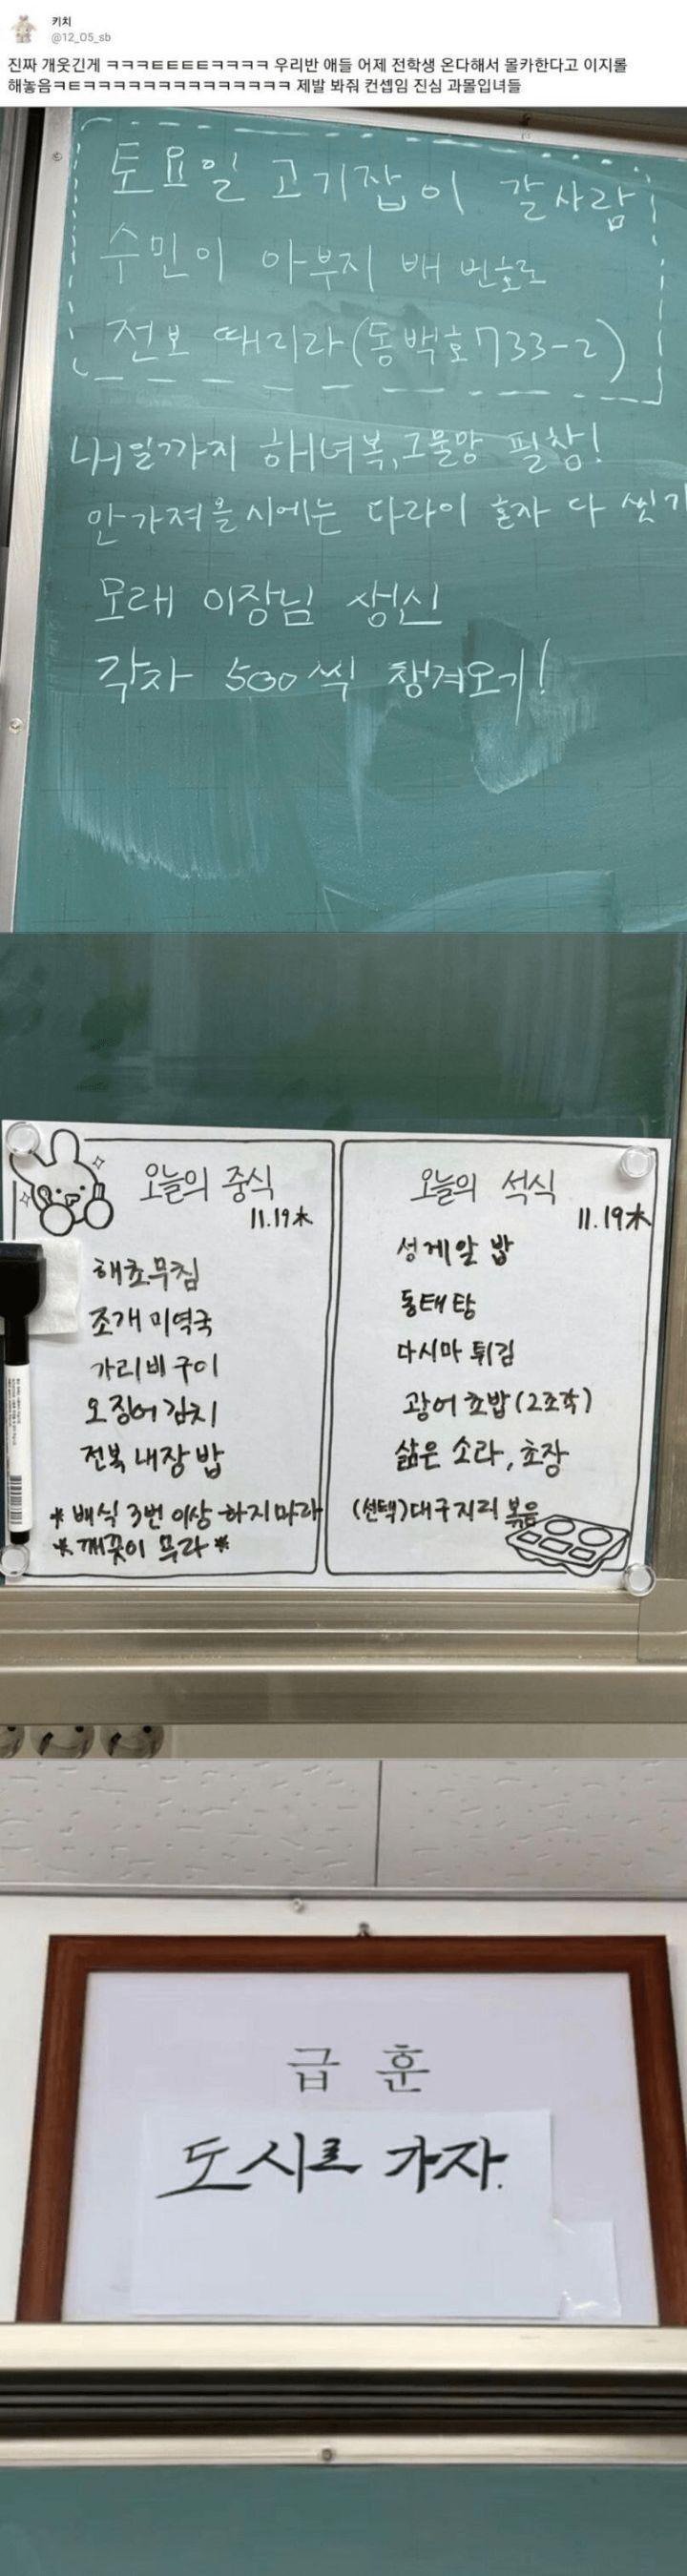 키치
@12_05_sb
진짜 개웃긴게 ㅋㅋㅋㅌㅌㅌㅌㅋㅋㅋㅋ 우리반 애들 어제 전학생 온다해서 몰카한다고 이지롤
해놓음ㅋㅌㅋㅋㅋㅋㅋㅋㅋㅋㅋㅋㅋㅋㅋㅋ 제발 봐줘 컨셉임 진심 과몰입녀들
토요일 고기잡이 갈사람
수민이 아부지 배 번호로
전보 때리라(동백호733-2)
내일까지 해녀복,그물망 필참!
안가져올시에는 다라이 혼자 다 씻기
모레 이장님 생신
각자 500씩 챙겨오기!
오늘의 중식
11.19木
해초무침
조개미역국
가리비구이
오징어김치
전복내장밥
*배식 3번 이상 하지마라
*깨끗이 무라*
오늘의 석식
11.19木
성게알밥
동태탕
다시마 튀김
광어초밥(2조각)
삶은 소라, 초장
(선택)대구지리 볶음
급훈
도시로 가자.